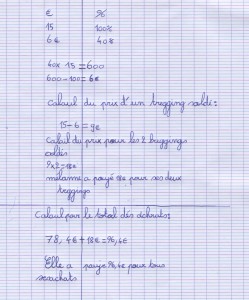 € %
15 100%
6€ 40€
40x 15 = 600
600 - 100 = 6€
Calcul du prix d'un tregging soldé:
15 - 6 = 9€
Calcul du prix pour les 2
soldés
9x2 = 18€
mélanie a payé 18€ pour ses deux
treggings
Calcul par le total des achats:
78,4€ + 18€ = 96,4€
Elle a payé 96,4€ pour tous